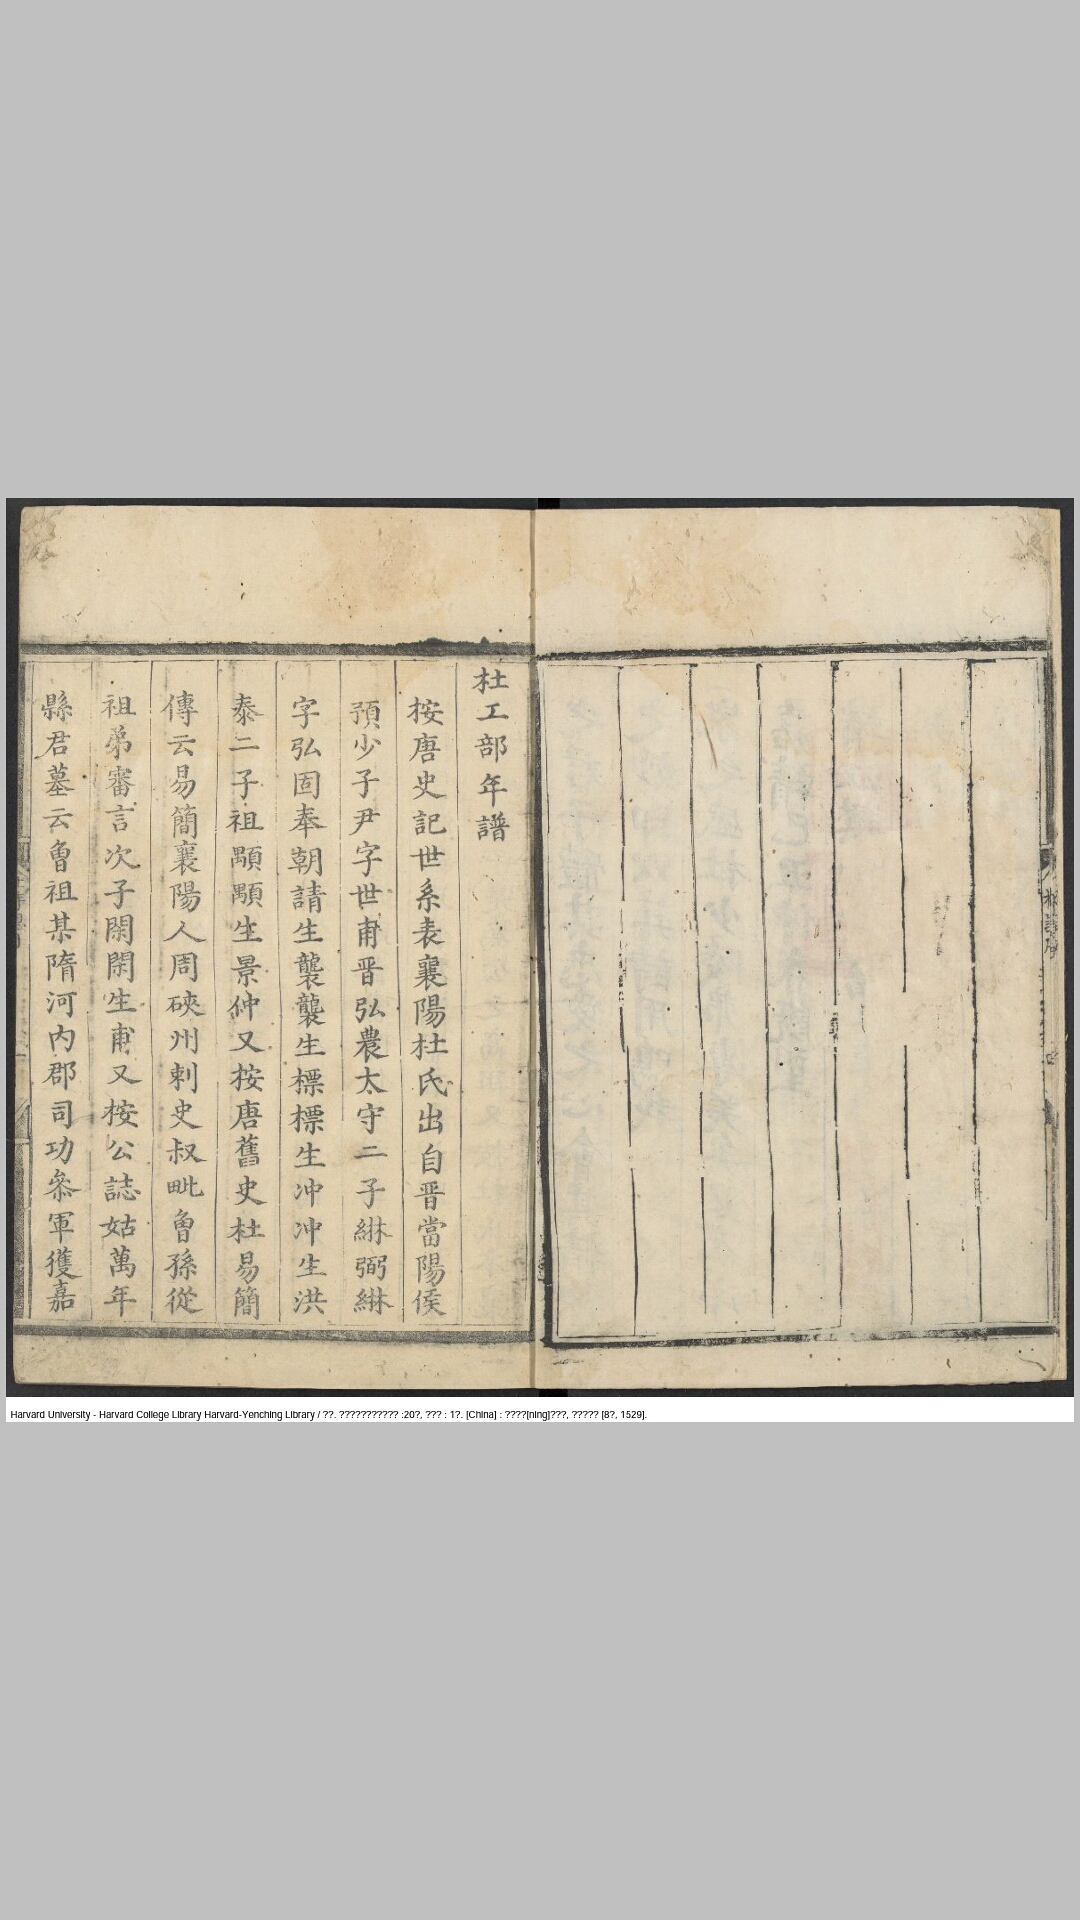 杜工部年譜
按唐史記世系表襄陽杜氏出自晋當陽侯
預少子尹字世甫晋弘農太守二子綝弼綝
字弘固奉朝請生襲襲生標標生冲冲生洪
泰二子祖顒顒生景仲又按唐舊史杜易簡
傳云易簡襄陽人周硤州刺史叔毗曾孫從
祖弟審言次子閑閑生甫又按公誌姑萬年
縣君墓云曾祖某隋河内郡司功叅軍獲嘉
Harvard University - Harvard College Library Harvard-Yenching Library / ??. ??????????? :20?, ??? : 1?. [China] : ????[ning]???, ????? [8?, 1529].